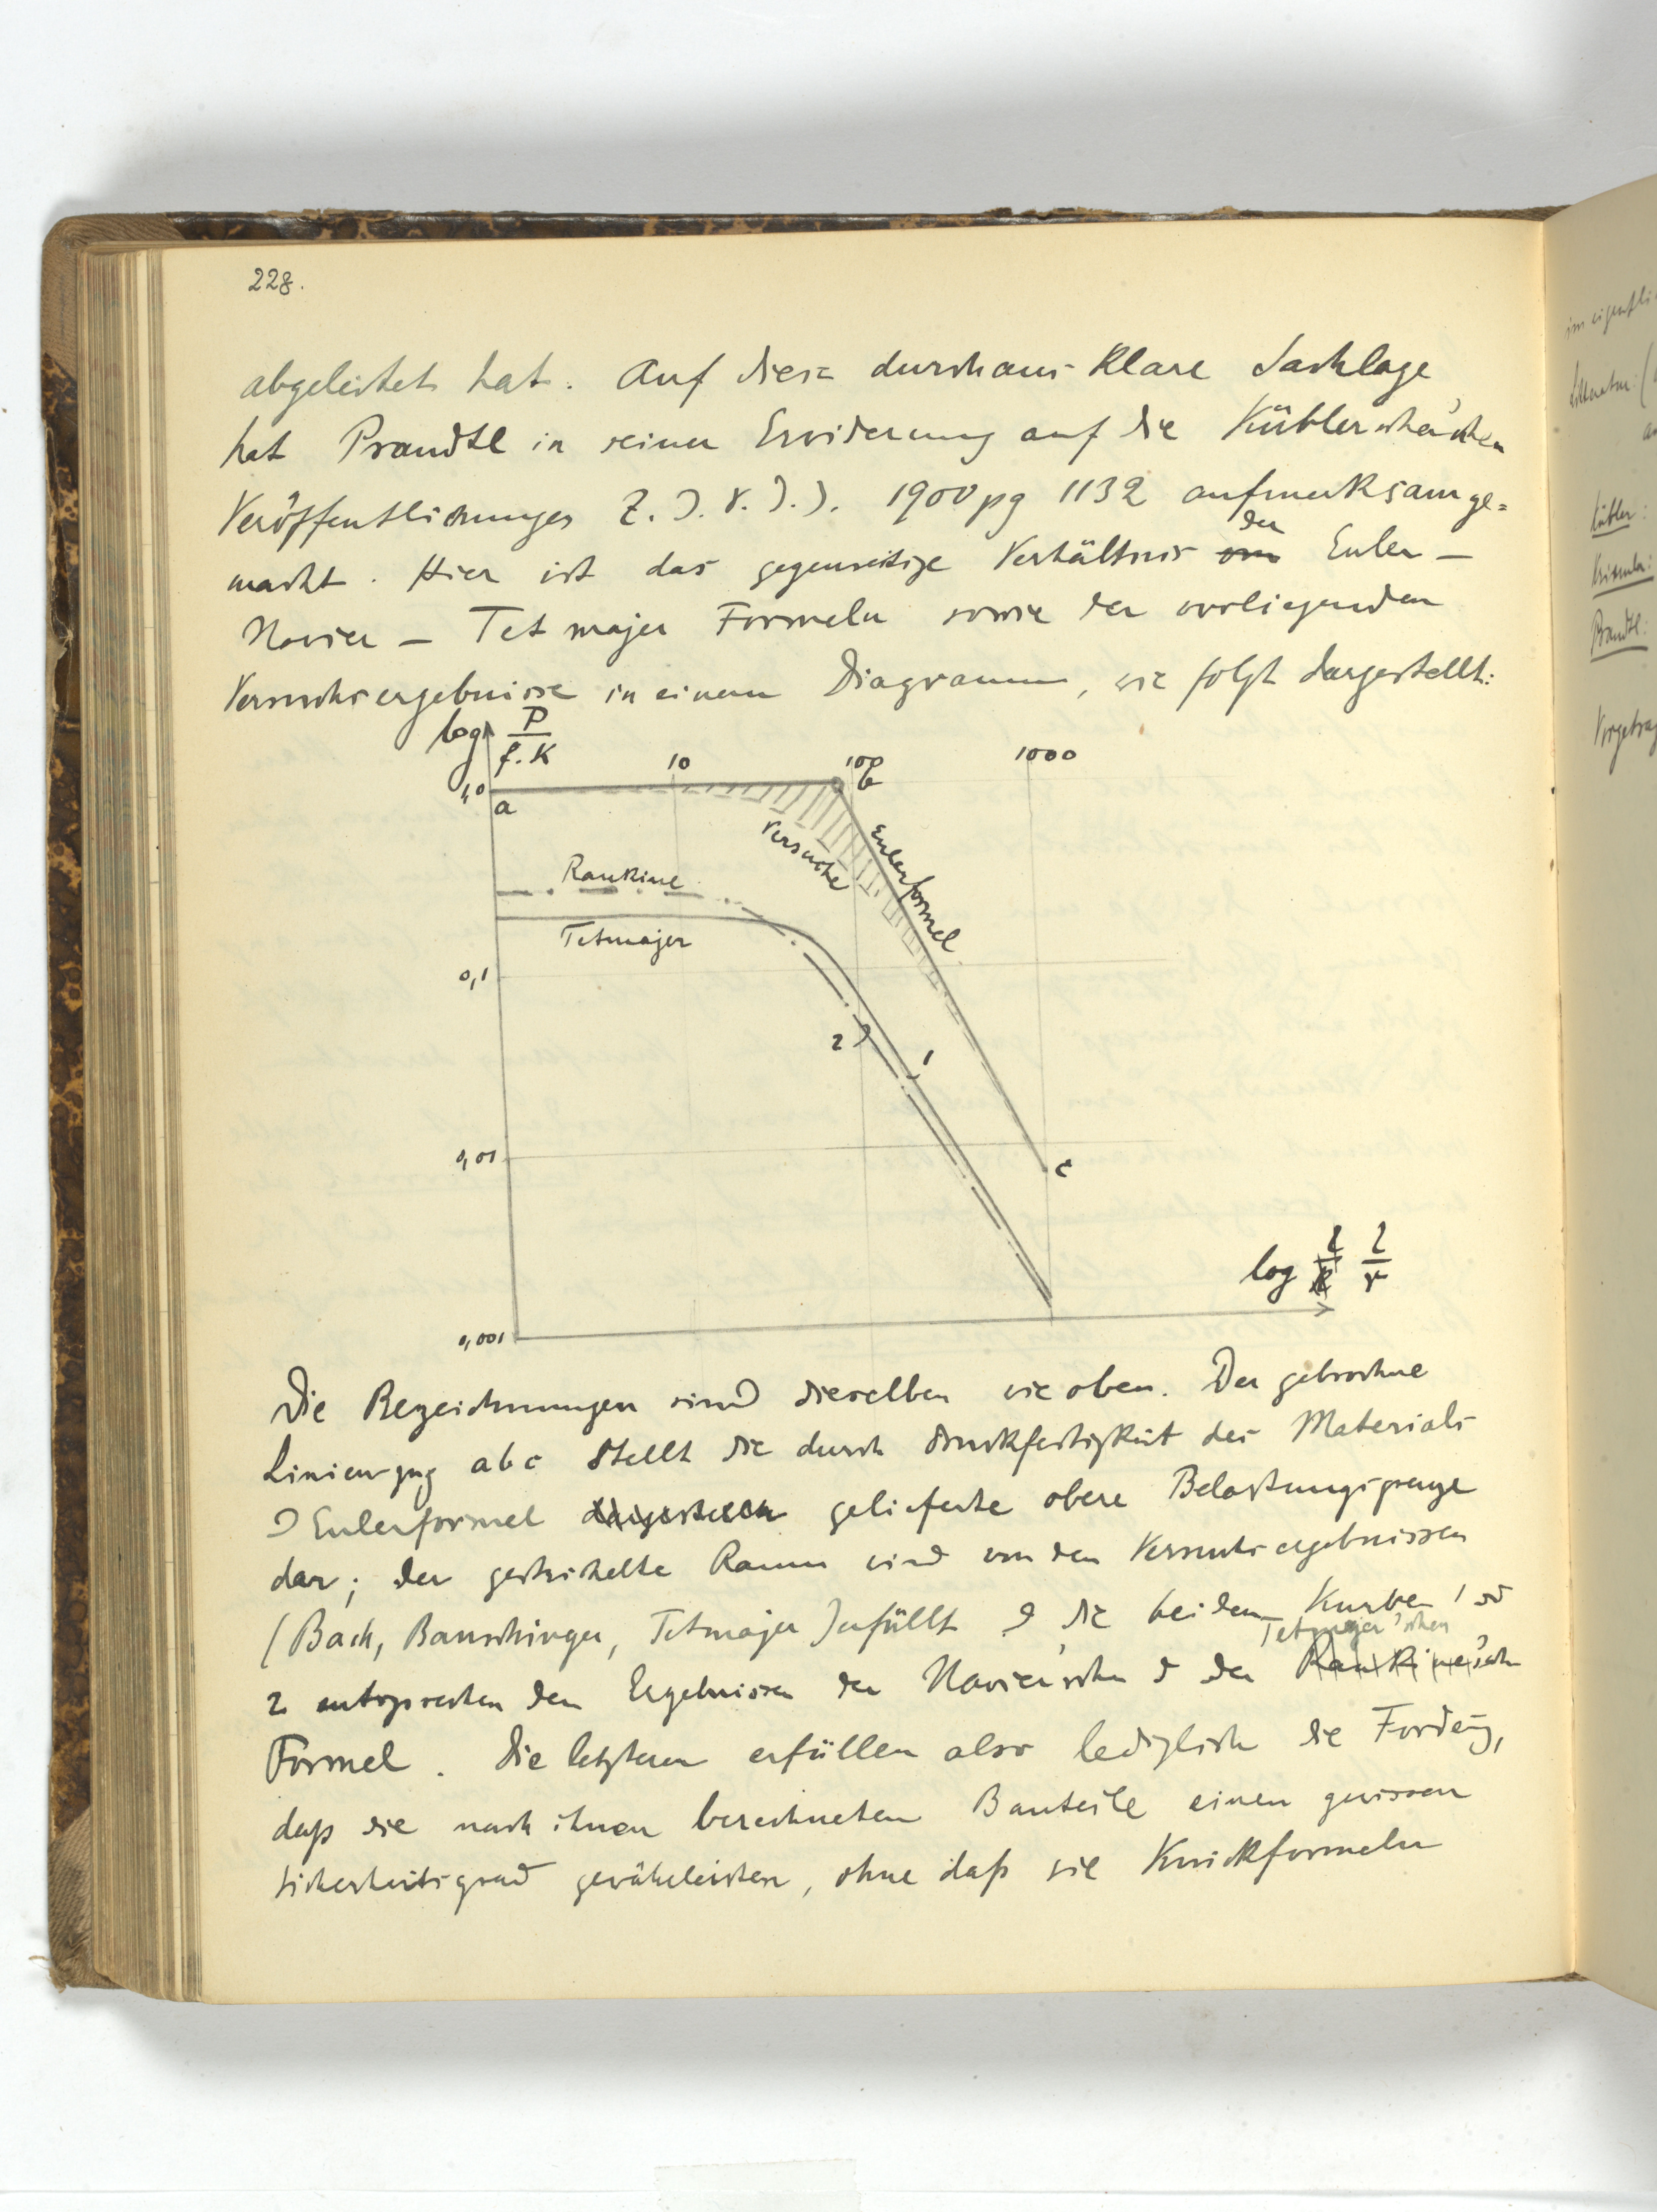 228.
abgeleitet hat. Auf diese durchaus klare Sachlage
hat Prandtl in seiner Erwiderung auf die Kübler'schen
Veröffentlichungen Z. d. V. d. I. 1900 pg 1132 aufmerksam ge=
macht. Hier ist das gegenseitige Verhältnis der Euler –
Navier – Tetmajer Formeln sowie der vorliegenden
Versuchsergebnisse in einem Diagramm, wie folgt dargestellt:
log P/f.K
10
100
1000
1,0
a
b
Versuche
Eulerformel
Rankine
Tetmajer
0,1
2
1
0,01
c
log l/r
0,001
Die Bezeichnungen sind dieselben wie oben. Der gebrochne
Linienzug abc stellt die durch Druckfestigkeit des Materials
& Eulerformel gelieferte obere Belastungsgrenze
dar; der gestrichelte Raum wird von den Versuchsergebnissen
(Bach, Bauschinger, Tetmajer) erfüllt & die beiden Kurven 1 &
Tetmajer'schen
2 entsprechen den Ergebnissen der Navier'schen & der Rankine'schen
Formel. Die letzteren erfüllen also lediglich die Forderg,
daß die nach ihnen berechneten Bauteile einen gewissen
Sicherheitsgrad gewährleisten, ohne daß sie Knickformeln
im eigentli
Litteratur: (
Kübler:
Prandtl:
Vorgetrag